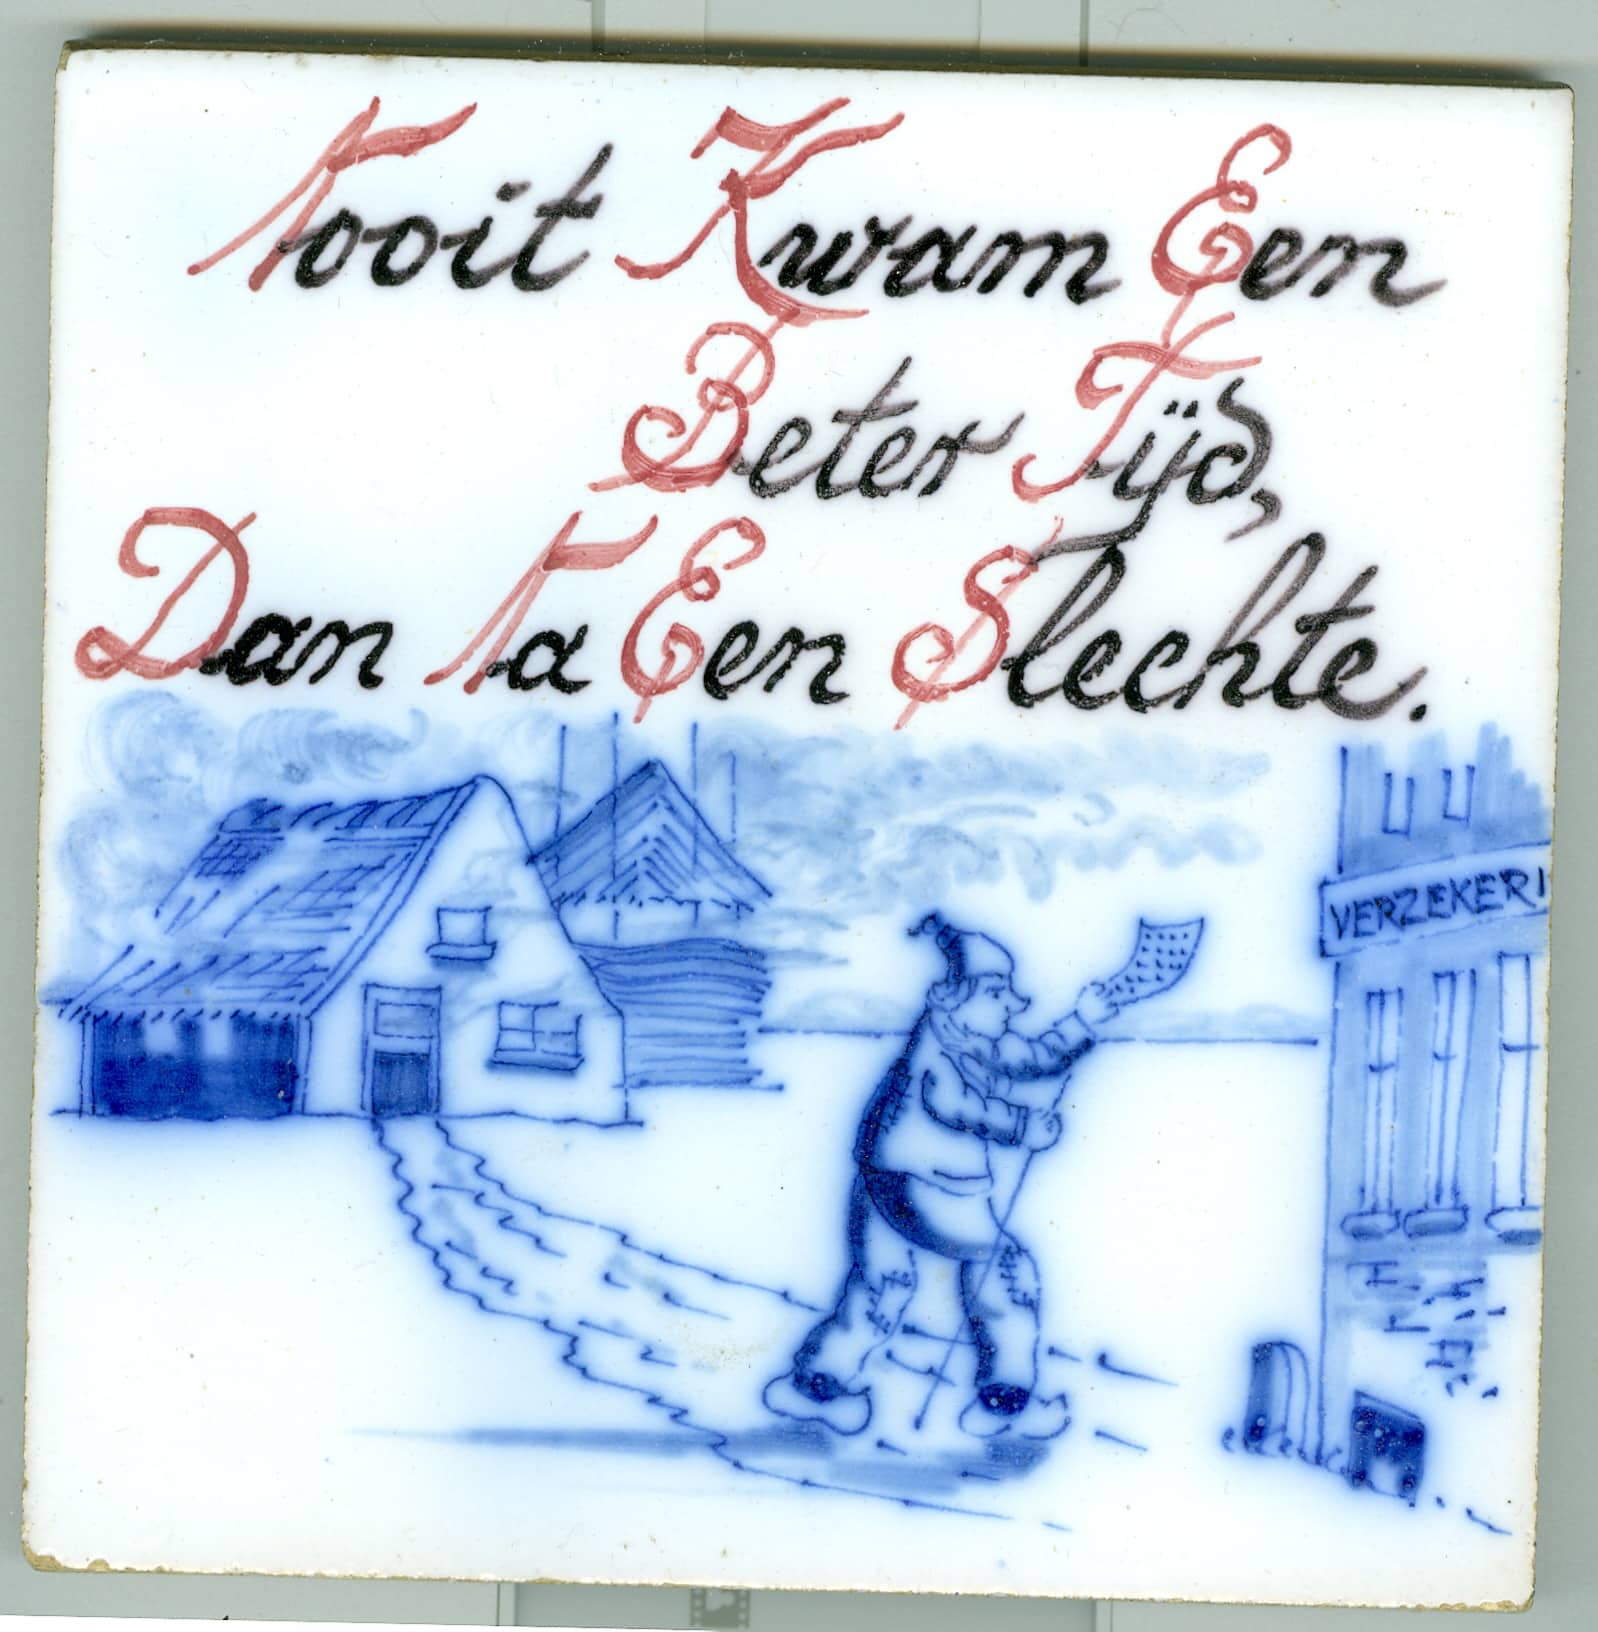 Nooit Kwam Een
Beter Tijd,
Dan Na Een Slechte.
VERZEKERI